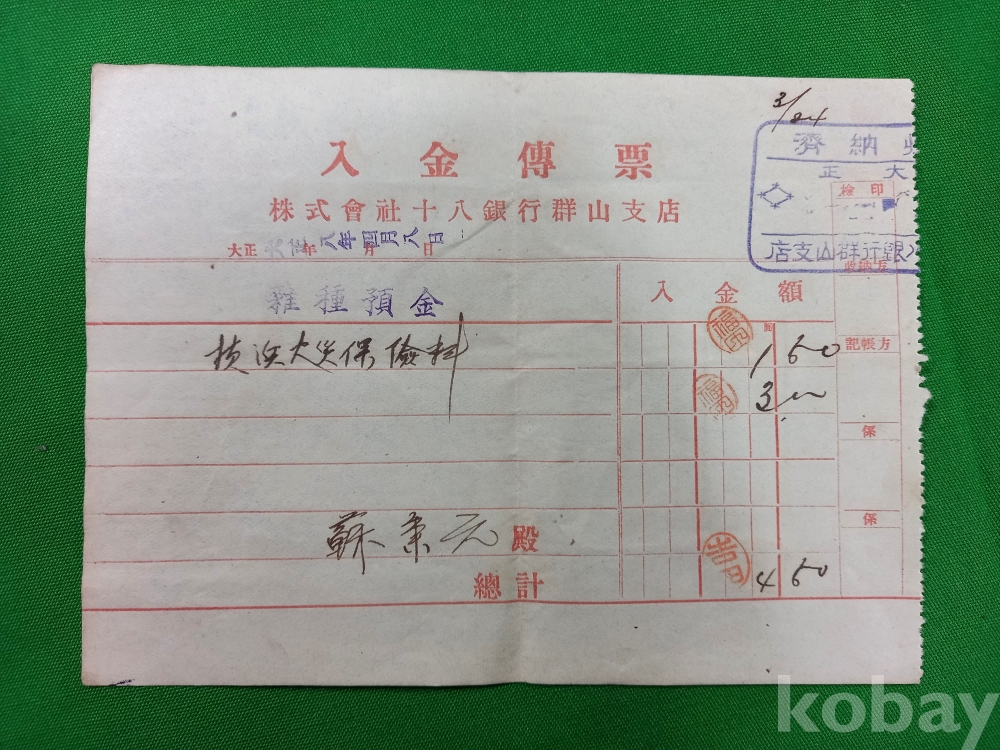 3/24
入金傳票
納濟
大正
株式會社十八銀行群山支店
檢印
大正 年 月 日
八年四月八日
銀行群山支店
收納方
雜種預金
入金額
圓
記帳方
横浜火災保險料
1 50
3
係
係
蘇秉元殿
總計
4 50
kobay